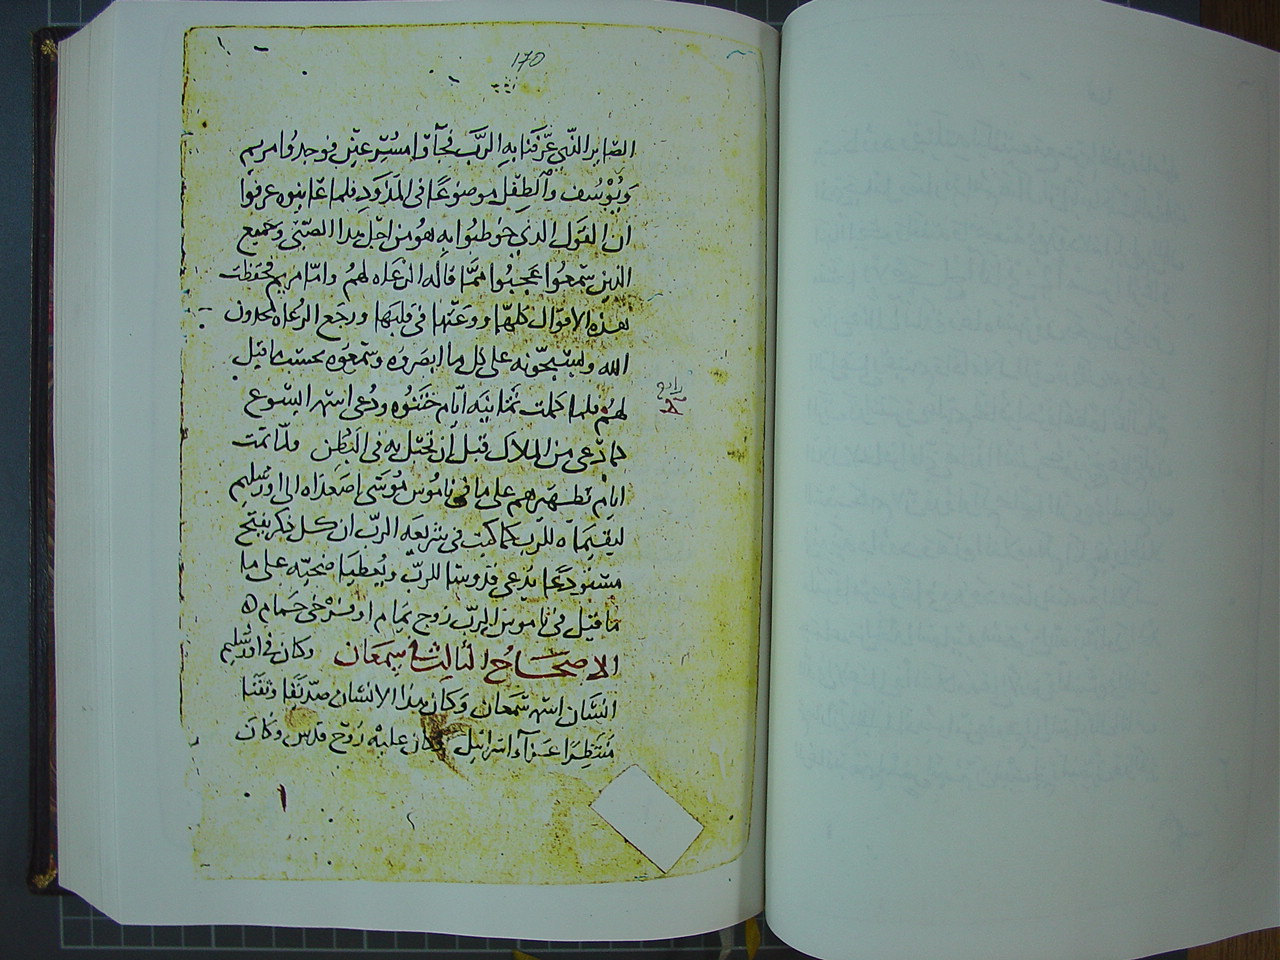 170
الصّاير الذّي عرّفنا به الرَّب فجآوا مسُتِرعين فوجدوا مريم
وَيوُسُف والطِفل موضوعًا في المذوَد فلما عاينوه عرفوا
ان القول الذي خوطبوا به هو من اجل هذا الصّبي وَجميع
الذين سمعوا عجبوا ممّا قاله الرعاه لهمُ وامّا مريم فحفظت
هذه الاقوال كلهّا ووَعَتها في قلبها ورجَع الرعاه يمجدون
الله ويسبّحّونه على كل ما ابصروه وسمعوه بحسب ما قيل
لهمُ فلما كملت ثمانيَه ايّام ختنوُه ودُعى اسمه ايسوع
رابع
كما دّعى من الملاك قبل ان تحبل به في البَطن ولمّا تمت
ايام تطهيرهم على ما في ناموُس موُسَى اصعداه الى اورشليم
ليقيماه للرب كما كتب في شريعَه الربّ ان كل ذكر يفتح
مستودعًا يُدعى قدوسًا للربّ ويُعطيَا ضحيّه على ما
ما قيل في ناموس الربّ زوج يمام او فرخى حَمام ه
الاصحَاحُ الثالِث في سِمعَان وكان في اورشليم
انسَان اسمه سَمعان وَكان هذا الانسَان صدّيقًا وتقيًا
مُنتَظِرًا عَزآء اسرائيل وكان عليه رُوح قدس وَكان